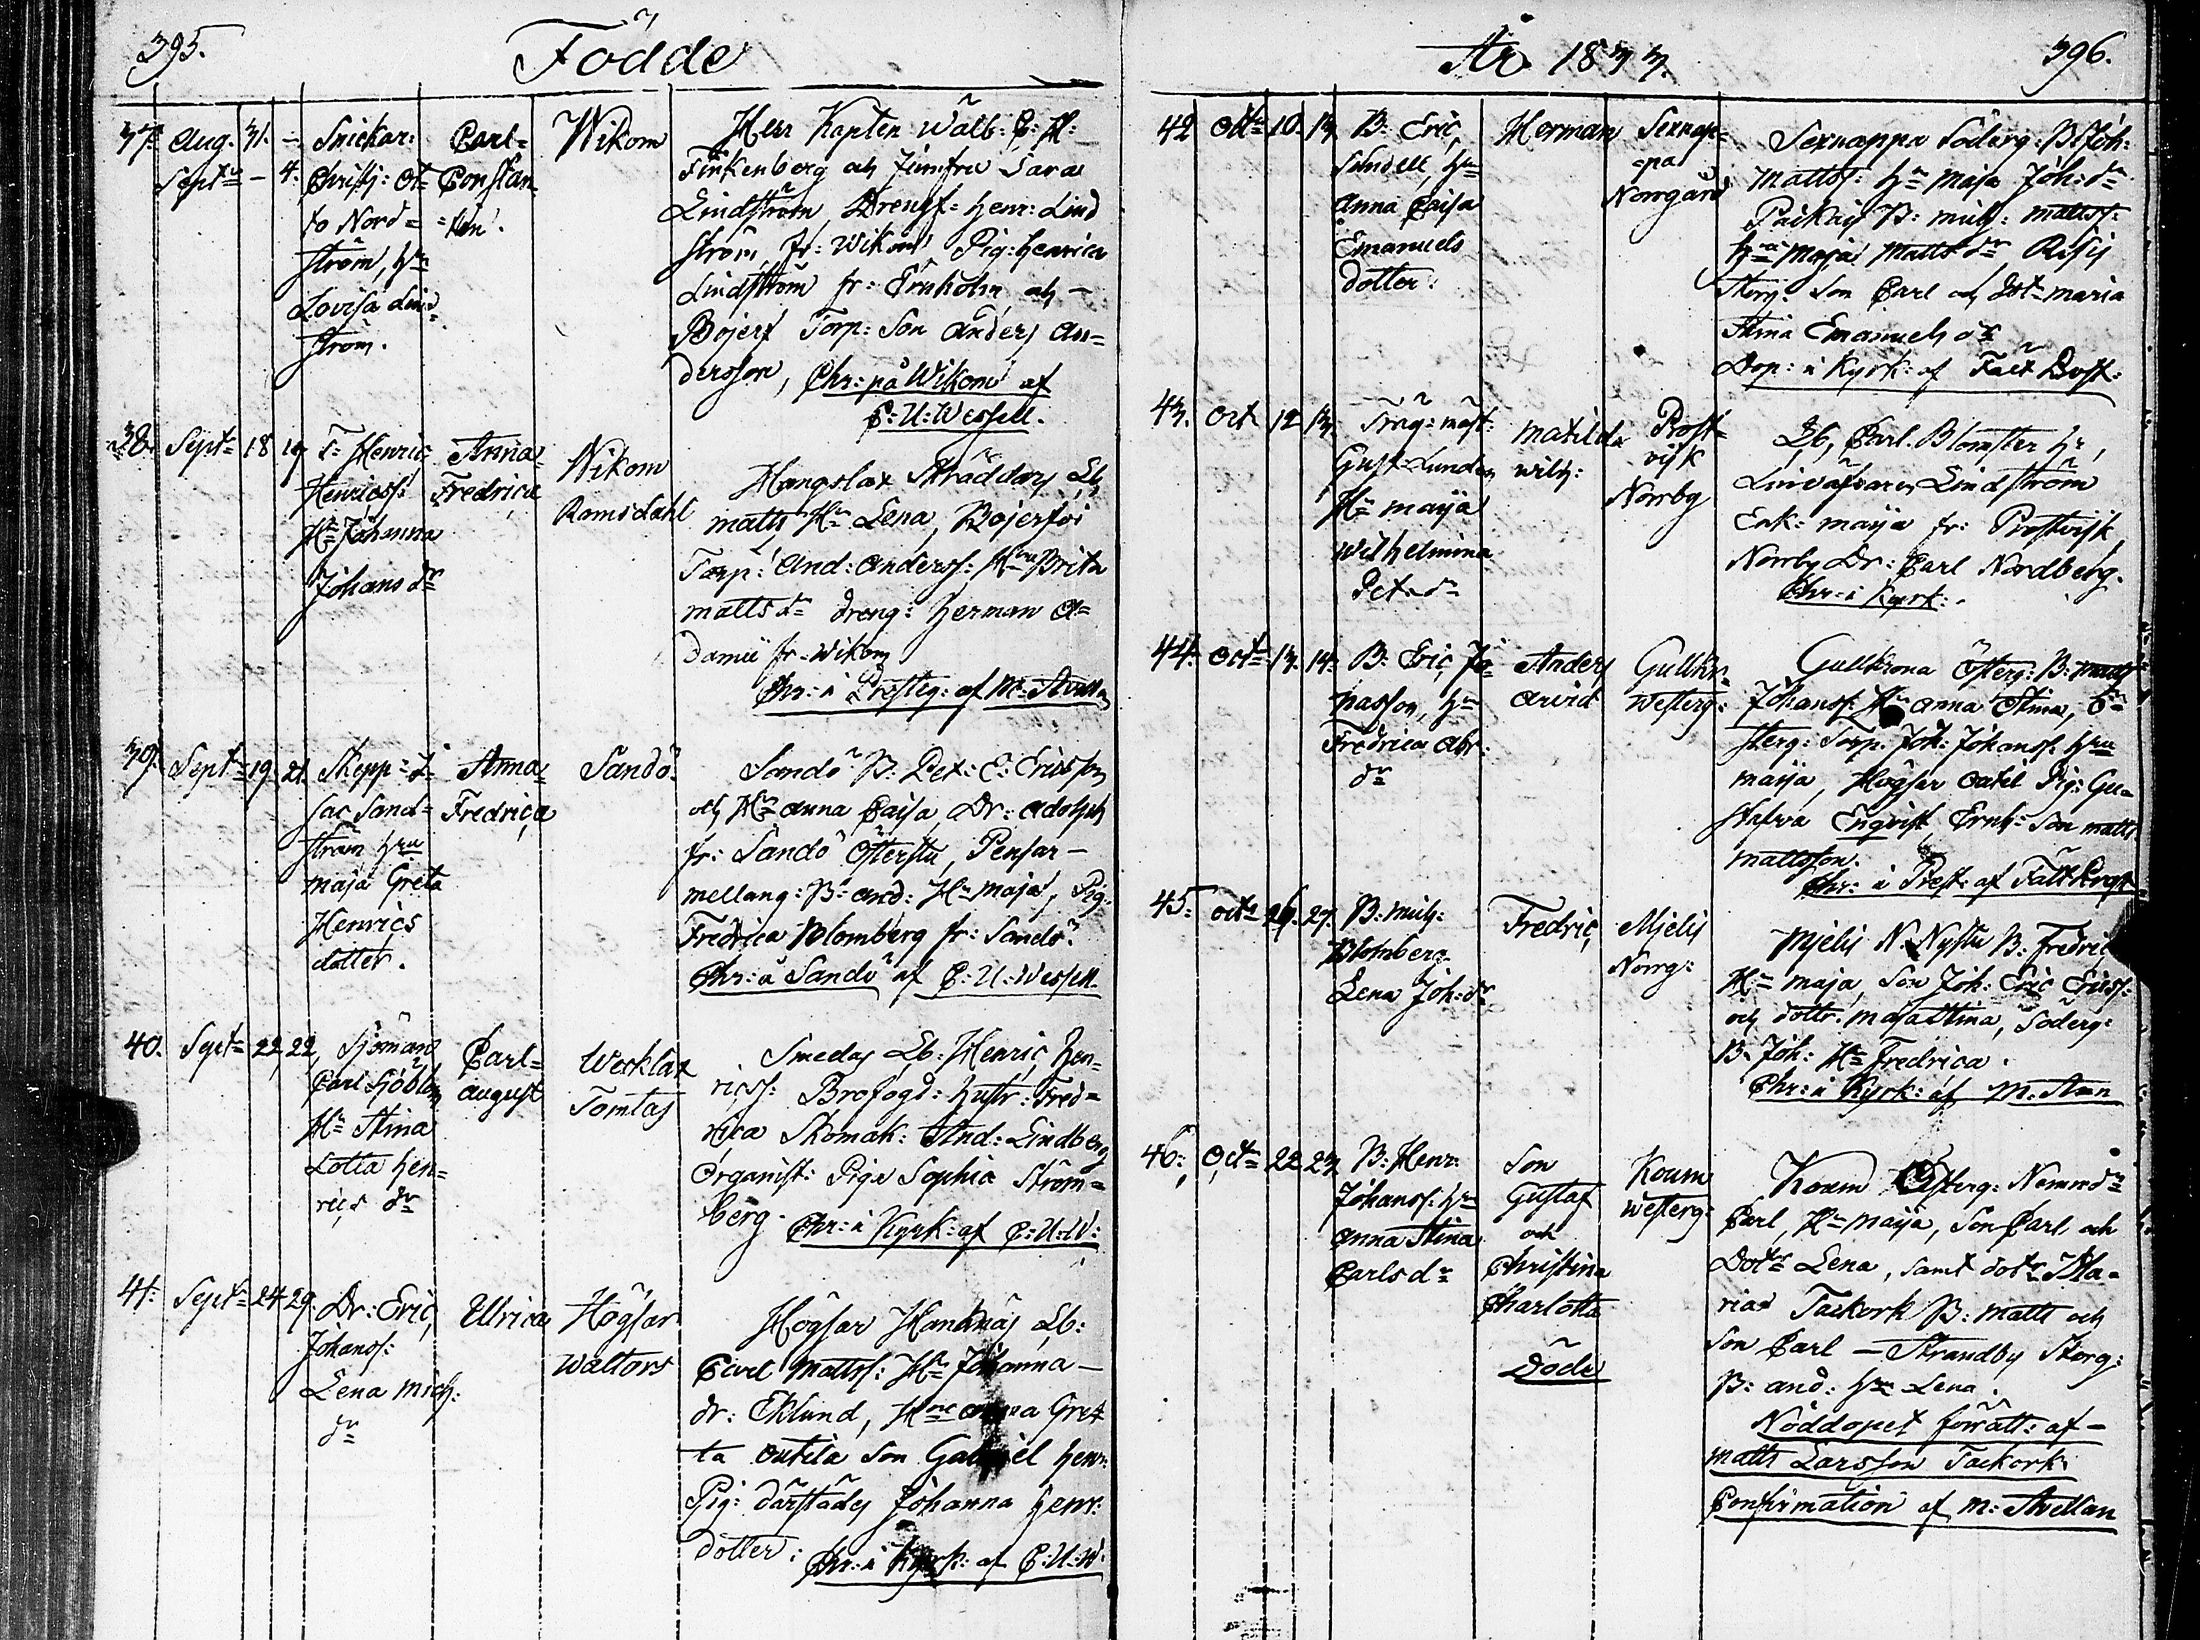 395.
Födde
37. Aug. 31. –
Sept. – 4.
Snickar:
Christ: Ot=
to Nord=
ström, Hu
Lovisa Lind
ström.
Carl=
Constan=
=tin.
Wikom
Herr Kapten Walb: C: H:
Finkenberg och Jumfru Sara
Lindström, Drengf: Henr: Lind
ström, fr: Wikom Pig: Henrica
Lindström fr: Ernholm och –
Bojerf Torp: Son Anders An=
dersson, Chr: på Wikom af
C: U: Wessell.
38. Sept. 18 19
Henric
Henricss:
Hu Johanna
Johans dr
Anna
Fredrica
Wikom
Ramsdahl
Mangslax Skräddars Lb.
Matts Hu Lena, Bojerf
Torp: And: Anderss: Hu Brita
Matts dr dreng: Herman A=
damii fr. Wikom
Chr: i Presteg: af M:
39. Sept. 19. 21.
Skepp: I=
sac Sand=
ström Hu
Maja Greta
Henrics
dotter.
Anna
Fredrica
Sandö
Sandö B: Pet: E: Ericsson
och Hu Anna Caisa, Dr: Adolph
fr: Sandö Österstu, Pensar –
mellang: B: And: Hu Maja, Pig:
Fredrica Blomberg fr: Sandö.
Chr: å Sandö af C: U: Wessell.
40. Sept. 22. 22.
Sjöman
Carl Sjöblom
Hu Stina
Lotta Hen=
rics dr
Carl=
August
Werklax
Tomtas
Smeds Lb: Henric Hen=
ricss: Brofogd: Hustr: Fred=
rica Skomak: And: Lindberg
Organist: Piga Sophia Ström=
berg. Chr: i Kyrk: af C: U: W:
41. Sept. 24 29.
Dr: Eric
Johanss:
Lena Mich:
dr
Ulrica
Högsar
Waltors
Högsar Hannäs Lb:
Carl Mattss: Hu Johanna –
dr: Eklund, Hu Anna Gret
ta Outila Son Gabriel Henr:
Pig: därstädes Johanna Henr:
dotter: Chr: i Kyrk: af C: U: W:
År 1833.
396.
42 Oct. 10. 13.
B: Eric
Sundell, Hu
Anna Caisa
Emanuels
dotter.
Herman
Sexnap=
=pa
Norrgård
Sexnappa Söderg: B: Joh:
Mattss: Hu Maja Joh: dr
B: Mich: Mattss:
Hu Maja Matts dr, Risis
Storg: Son Carl och dot. Maria
Stina Emanuels dr
Dop: i Kyrk: af
43. Oct 12 13.
Träg: mäst:
Gust: Lunden
Hu Maija
Wilhelmina
Pet. dr
Matilda
Wilh:
Prost=
visk
Norrby
Lb, Carl Blomster Hu,
Lindström
Enk: Maija fr: Prostvisk
Norrby Dr: Carl Nordberg.
Chr: i Kyrk:
44. Oct. 13. 14.
B: Eric Jo=
nasson, Hu
Fredrica Abr:
dr
Anders
Arvid
Gullkr.
Westerg:
Gullkrona Österg: B: Matts
Johanss: Hu Anna Stina, Ö=
sterg: Torp: Joh: Johanss: Hu
Maija, Högsar Oxtil Pig: Gu=
stafva Engvist, Ernh: Son Matts
Mattsson.
Chr: i Prest: af
45. Oct. 26. 27.
B: Mich:
Blomberg
Lena Joh: dr
Fredric
Mjelis
Norrg:
Mjelis N. Nystu B: Fredric
Hu Maja, Son Joh: Eric Ericss:
och dottr. Maja Stina, Söderg:
B. Joh: Hu Fredrica.
Chr: i Kyrk: af M:
46. Oct. 22 23
B: Henr:
Johanss: Hu
Anna Stina
Carls dr
Son
Gustaf
och
Christina
Charlotta
Döde
Koum
Westerg:
Koum Österg: Nämnd
Carl, Hu Maija, Son Carl och
Dotr Lena, samt dotr Ma=
ria Tackork B: Matts och
Son Carl – Strandby Storg:
B: And: Hu Lena.
Nöddopet förrätt: af –
Matts Larsson Tackork
Confirmation af M: Avellan